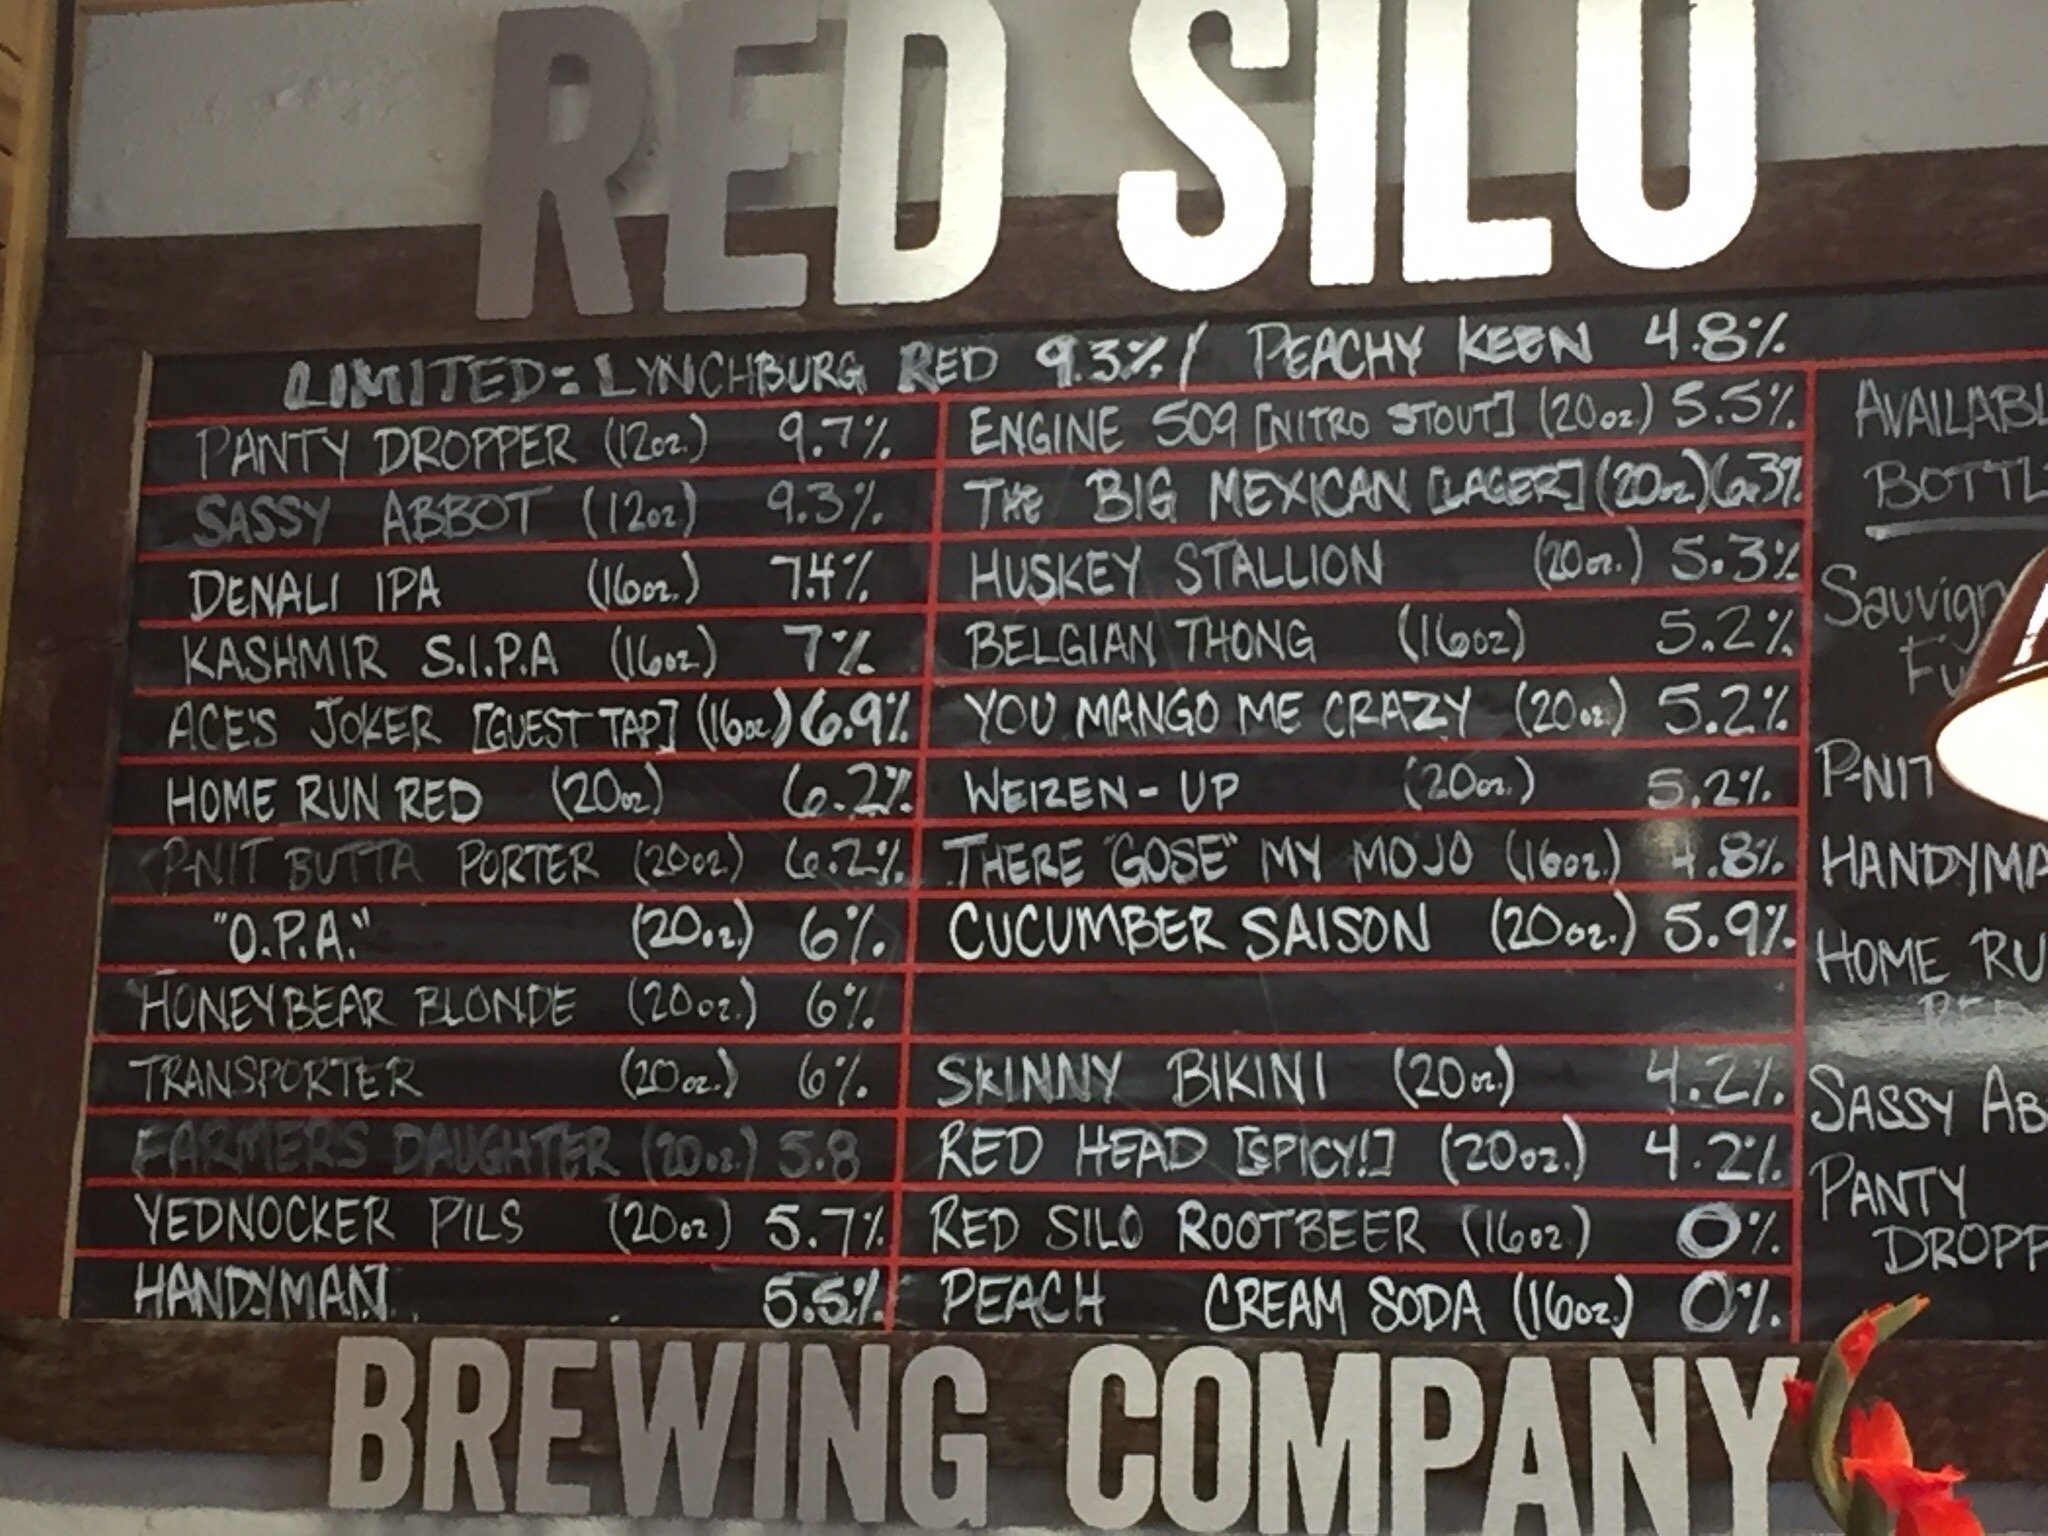 RED SILO
LIMITED: LYNCHBURG RED 9.3% / PEACHY KEEN 4.8%
PANTY DROPPER (12oz.) 9.7%
SASSY ABBOT (12oz) 9.3%
DENALI IPA (16oz.) 7.4%
KASHMIR S.I.P.A (16oz) 7%
ACE'S JOKER [GUEST TAP] (16oz.) 6.9%
HOME RUN RED (20oz) 6.2%
P-NIT BUTTA PORTER (20oz.) 6.2%
"O.P.A." (20oz.) 6%
HONEYBEAR BLONDE (20oz.) 6%
TRANSPORTER (20oz.) 6%
FARMERS DAUGHTER (20oz.) 5.8
YEDNOCKER PILS (20oz) 5.7%
HANDYMAN 5.5%
ENGINE 509 [NITRO STOUT] (20oz) 5.5%
THE BIG MEXICAN [LAGER] (20oz) 6.3%
HUSKEY STALLION (20oz.) 5.3%
BELGIAN THONG (16oz) 5.2%
YOU MANGO ME CRAZY (20oz) 5.2%
WEIZEN-UP (20oz.) 5.2%
THERE "GOSE" MY MOJO (16oz.) 4.8%
CUCUMBER SAISON (20oz.) 5.9%
SKINNY BIKINI (20oz.) 4.2%
RED HEAD [SPICY!] (20oz.) 4.2%
RED SILO ROOTBEER (16oz) 0%
PEACH CREAM SODA (16oz.) 0%
AVAILABL
BOTTL
Sauvign
Fu
P-NIT
HANDYMA
HOME RU
RED
SASSY AB
PANTY
DROPP
BREWING COMPANY